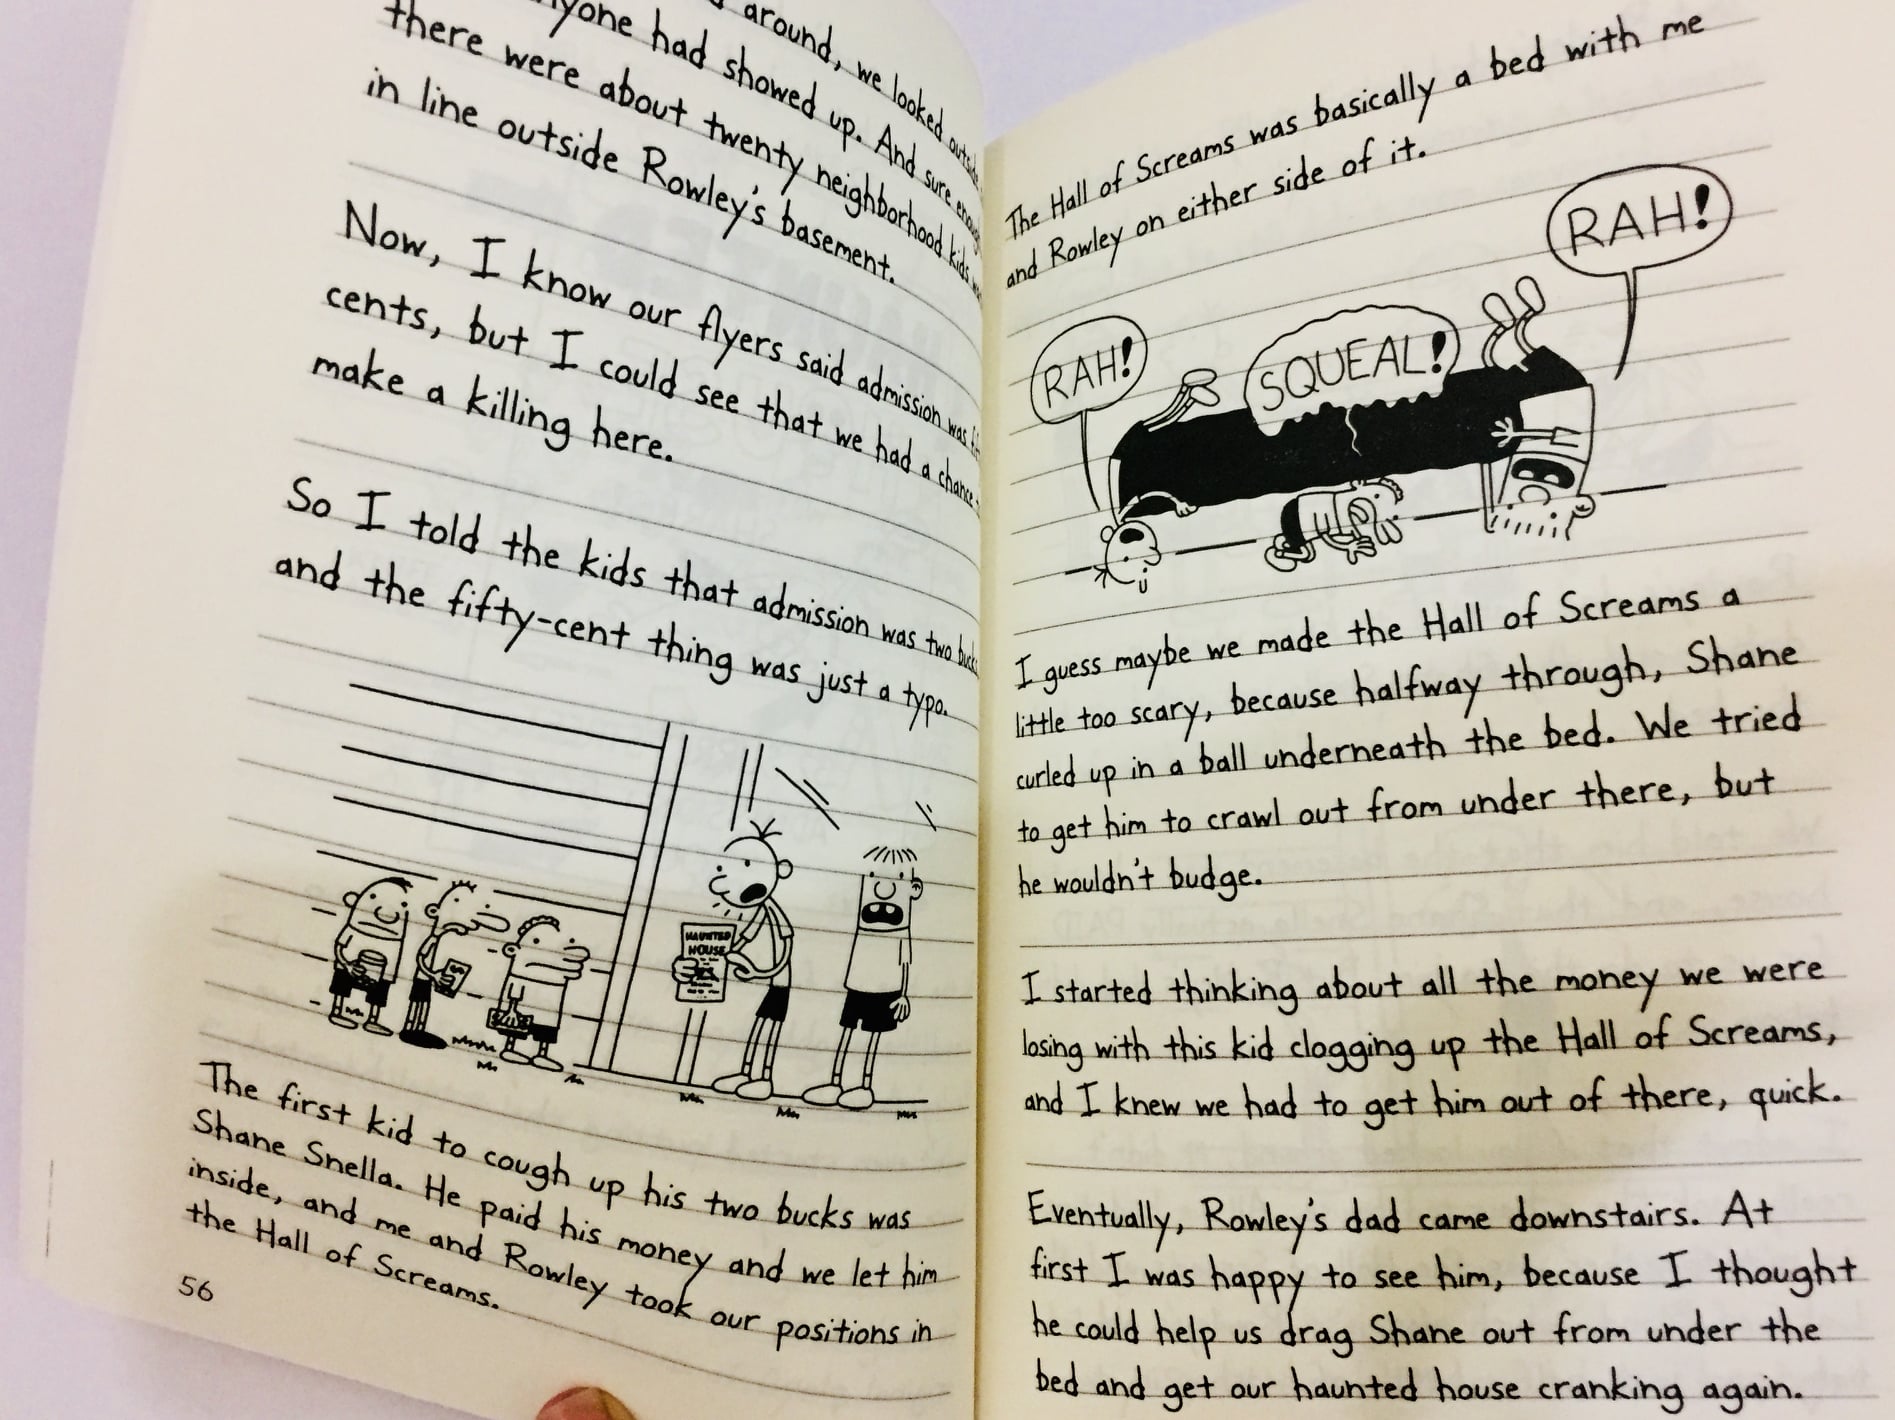 around, we looked
anyone had showed up. And sure
there were about twenty neighborhood kids
in line outside Rowley's basement.
Now, I know our flyers said admission was
cents, but I could see that we had a chance
make a killing here.
So I told the kids that admission was two bucks
and the fifty-cent thing was just a typo.
HAUNTED
HOUSE
The first kid to cough up his two bucks was
Shane Snella. He paid his money and we let him
inside, and me and Rowley took our positions in
the Hall of Screams.
56
The Hall of Screams was basically a bed with me
and Rowley on either side of it.
RAH!
SQUEAL!
RAH!
I guess maybe we made the Hall of Screams a
little too scary, because halfway through, Shane
curled up in a ball underneath the bed. We tried
to get him to crawl out from under there, but
he wouldn't budge.
I started thinking about all the money we were
losing with this kid clogging up the Hall of Screams,
and I knew we had to get him out of there, quick.
Eventually, Rowley's dad came downstairs. At
first I was happy to see him, because I thought
he could help us drag Shane out from under the
bed and get our haunted house cranking again.